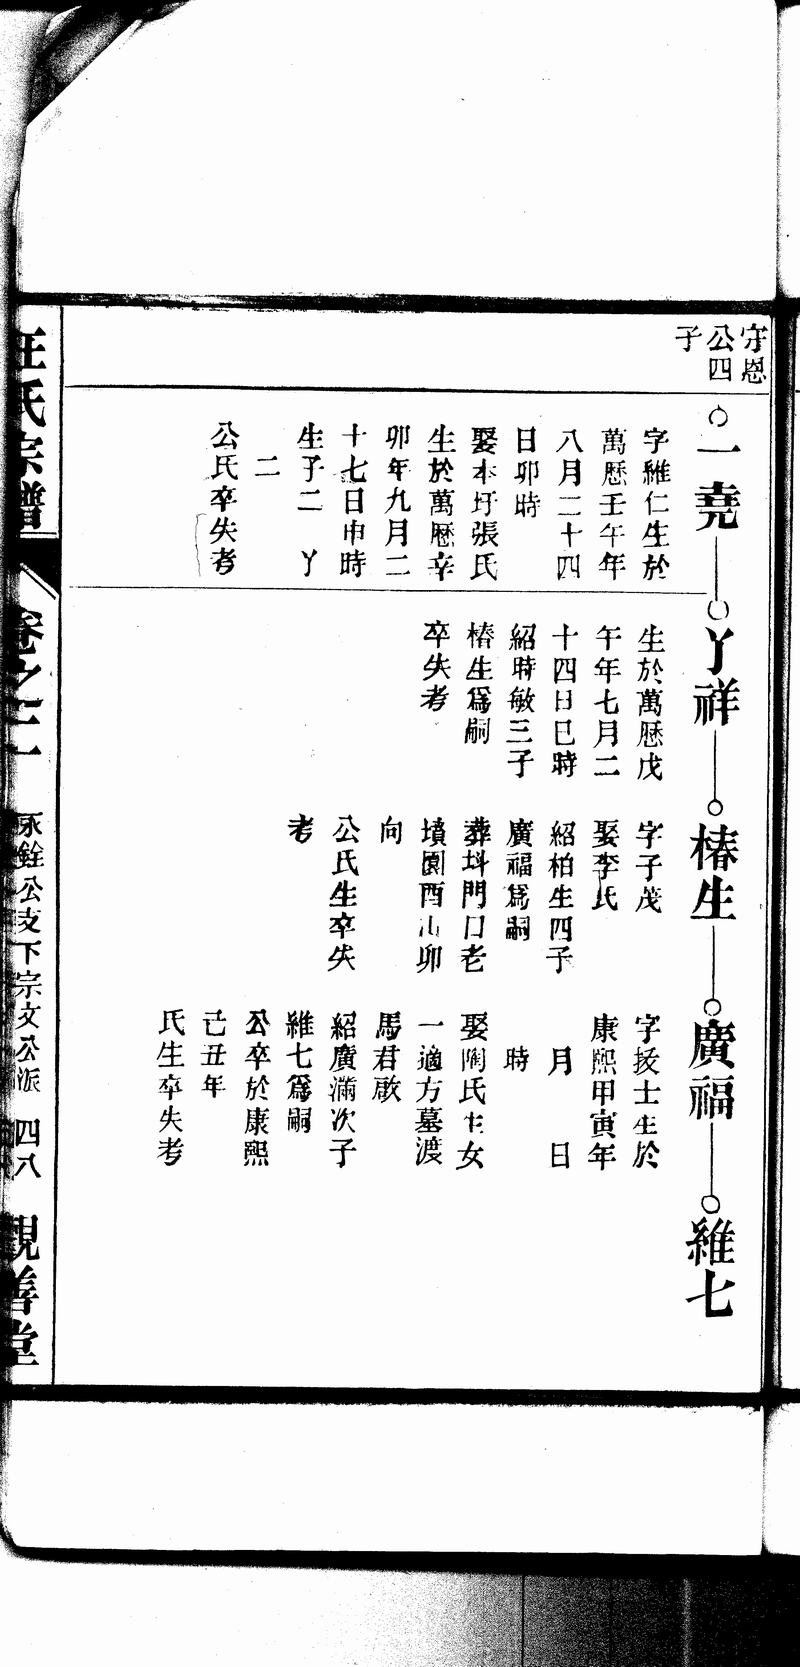 守恩
公四
子
一堯
字維仁生於
萬歷壬午年
八月二十四
日卯時
娶本圩張氏
生於萬歷辛
卯年九月二
十七日申時
生子二　丫
二
公氏卒失考
丫祥
生於萬歷戊
午年七月二
十四日巳時
紹時敏三子
椿生爲嗣
卒失考
椿生
字子茂
娶李氏
紹柏生四子
廣福爲嗣
葬㘰門口老
墳園酉山卯
向
公氏生卒失
考
廣福
字拔士生於
康熙甲寅年
月　日
時
娶陶氏生女
一適方墓渡
馬君
紹廣滿次子
維七爲嗣
公卒於康熙
己丑年
氏生卒失考
維七
汪氏宗譜
卷之二
永銓公支下宗文公派
四八
觀善堂